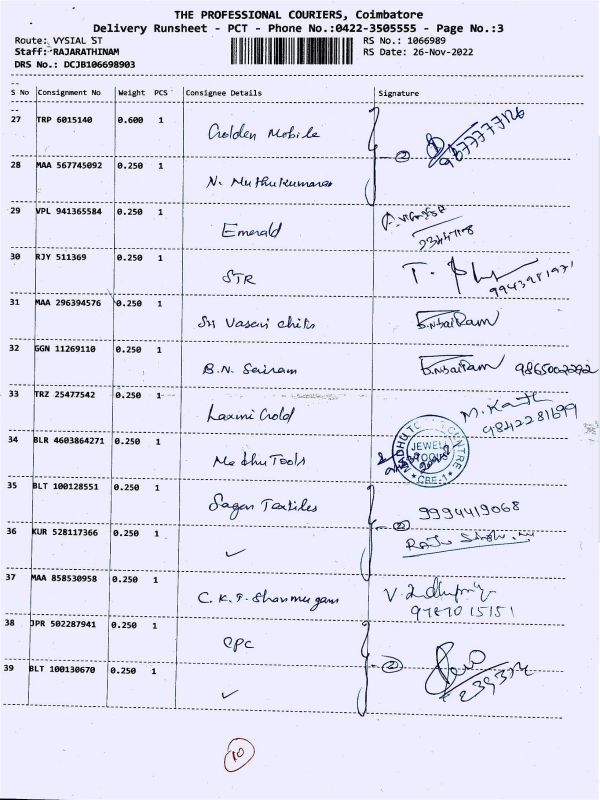 THE PROFESSIONAL COURIERS, Coimbatore
Delivery Runsheet - PCT - Phone No.:0422-3505555 - Page No.:3
Route: VYSIAL ST RS No.: 1066989
Staff: RAJARATHINAM RS Date: 26-Nov-2022
DRS No.: DCJB106698903
S No Consignment No Weight PCS Consignee Details Signature
27 TRP 6015140 0.600 1 Golden Mobile
28 MAA 567745092 0.250 1 N. Muthukumaran
29 VPL 941365584 0.250 1 Emerald
30 RJY 511369 0.250 1 STR
31 MAA 296394576 0.250 1 Sri Vasavi chits B.N.SaiRam
32 GGN 11269110 0.250 1 B.N. Sairam B.N.SaiRam
33 TRZ 25477542 0.250 1 Laxmi Gold M. Kanth
9842281699
34 BLR 4603864271 0.250 1 Madhu Tools MADHU TOOLS CENTRE JEWEL TOOLS CBE-1
35 BLT 100128551 0.250 1 Sagar Textiles 9994419068
36 KUR 528117366 0.250 1 ✓
37 MAA 858530958 0.250 1 C.K.T. Shanmugam
9787015151
38 JPR 502287941 0.250 1 CPC
39 BLT 100130670 0.250 1 ✓
10